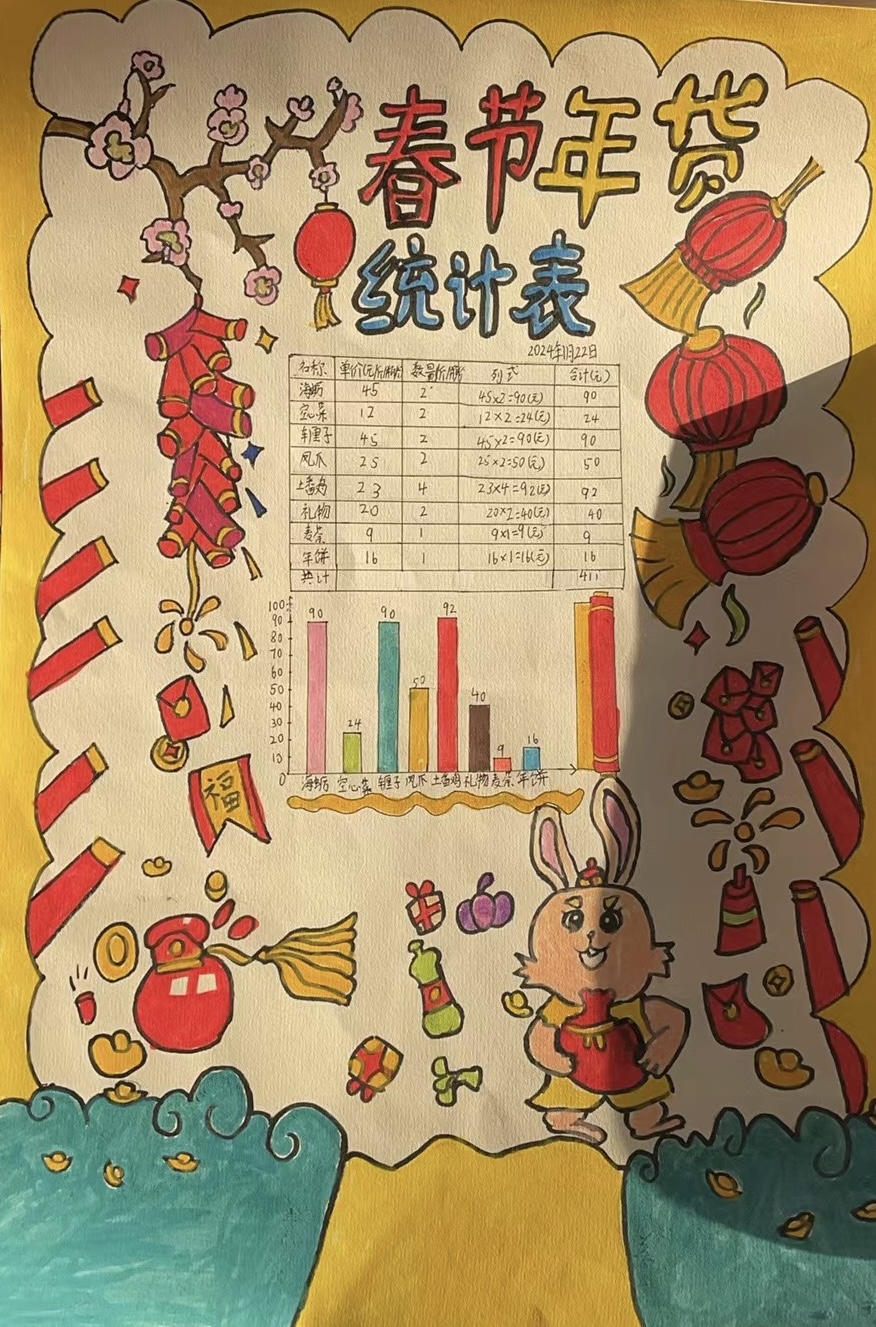 春节年货
统计表
2024年1月22日
名称 单价(元/斤/) 数量 列式 合计(元)
海蛎 45 2 45×2=90(元) 90
空心菜 12 2 12×2=24(元) 24
车厘子 45 2 45×2=90(元) 90
凤爪 25 2 25×2=50(元) 50
土番鸡 23 4 23×4=92(元) 92
礼物 20 2 20×2=40(元) 40
麦茶 9 1 9×1=9(元) 9
年饼 16 1 16×1=16(元) 16
共计 411
100
90
80
70
60
50
40
30
20
10
0
90 24 90 50 92 40 9 16
海蛎 空心菜 车厘子 凤爪 土番鸡 礼物 麦茶 年饼
福